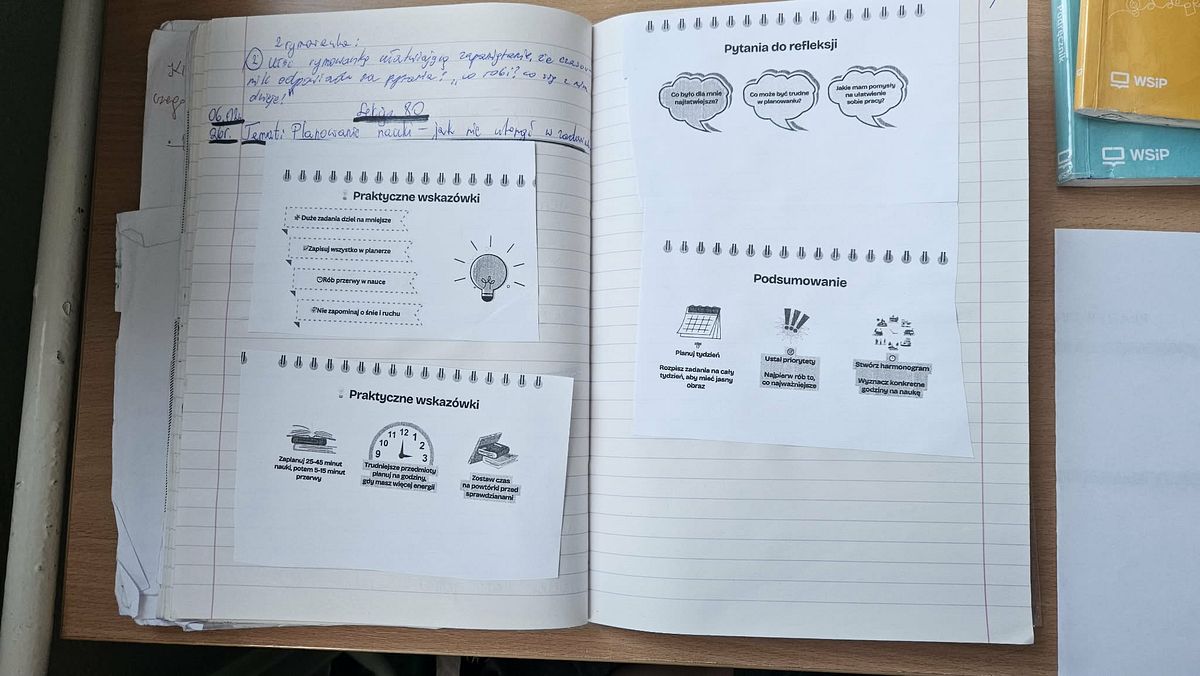 rymowanka:
② Ułóż rymowankę ułatwiającą zapamiętanie, że czasow-
nik odpowiada na pytania: "co robi? co się z nim
dzieje?"
Lekcja 80
Temat: Planowanie nauki – jak nie utonąć w
Praktyczne wskazówki
Duże zadania dziel na mniejsze
Zapisuj wszystko w planerze
Rób przerwy w nauce
Nie zapominaj o śnie i ruchu
Praktyczne wskazówki
Zaplanuj 25-45 minut
nauki, potem 5-15 minut
przerwy
9 10 11 12 1 2 3
Trudniejsze przedmioty
planuj na godziny,
gdy masz więcej energii
Zostaw czas
na powtórki przed
sprawdzianami
Pytania do refleksji
Co było dla mnie
najłatwiejsze?
Co może być trudne
w planowaniu?
Jakie mam pomysły
na ułatwienie
sobie pracy?
Podsumowanie
Planuj tydzień
Rozpisz zadania na cały
tydzień, aby mieć jasny
obraz
Ustal priorytety
Najpierw rób to,
co najważniejsze
Stwórz harmonogram
Wyznacz konkretne
godziny na naukę
Podręcznik
WSiP
WSiP